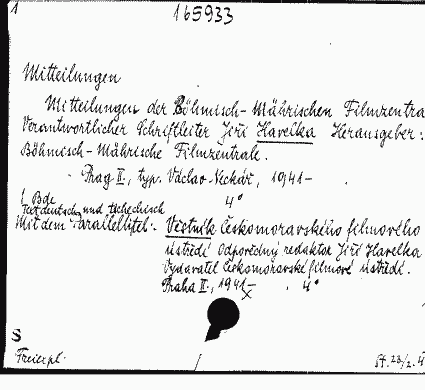 1
165933
Mitteilungen
Mitteilungen der Böhmisch-Mährischen Filmzentra
Verantwortlicher Schriftleiter Jiří Havelka Herausgeber:
Böhmisch-Mährische Filmzentrale.
Prag II, typ. Václav Neckář, 1941-
4°
Bde
Text deutsch und tschechisch
Mit dem Paralleltitel: Věstník Českomoravského filmového
ústředí Odpovědný redaktor Jiří Havelka
Vydavatel Českomoravské filmové ústředí.
Praha II, 1941- 4°
S
Freiexpl.